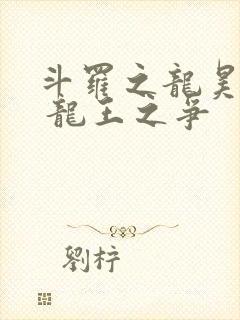 斗羅之龍昊
龍王之爭
劉梓